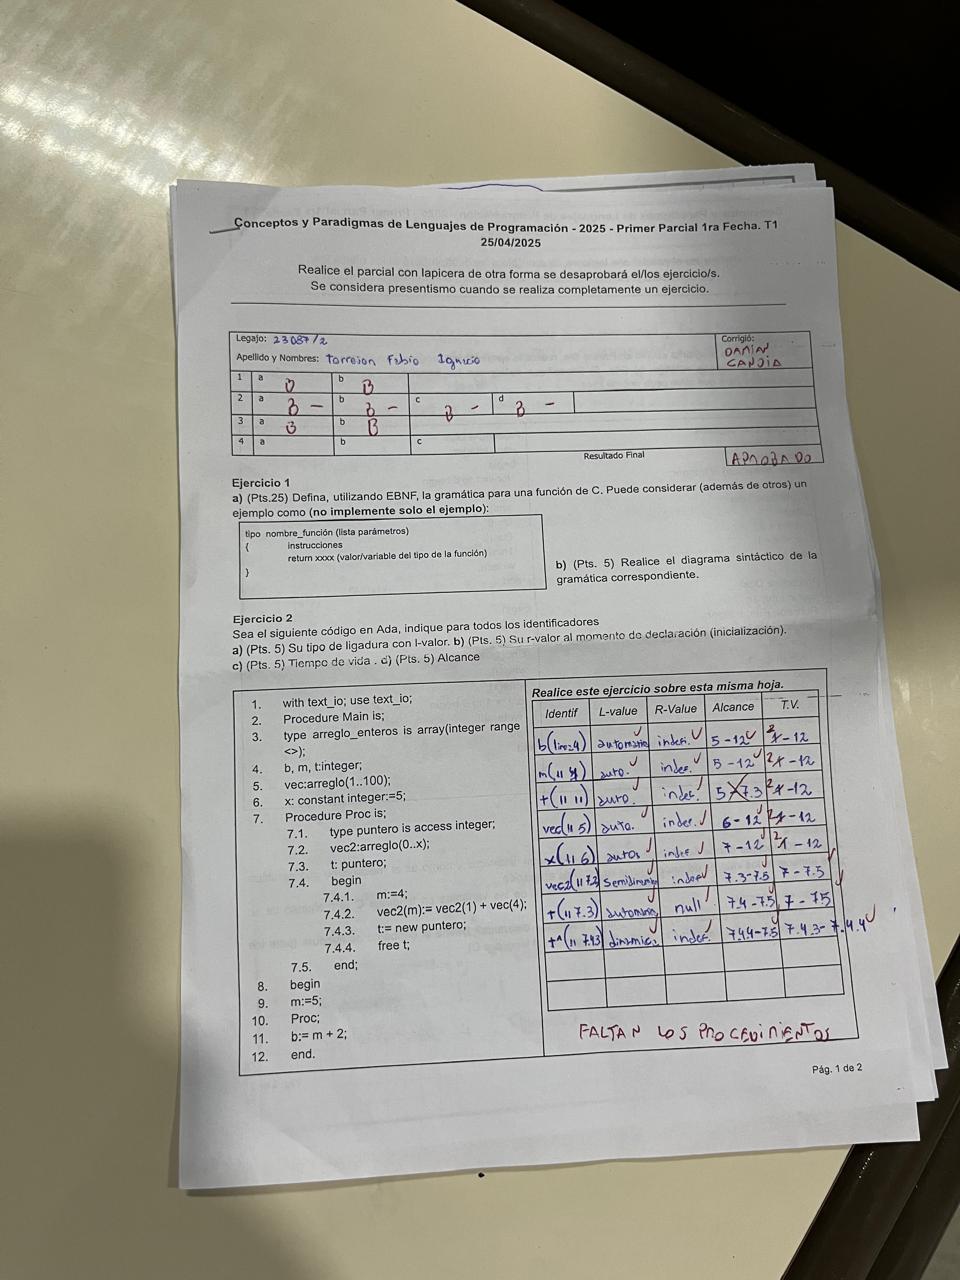 Conceptos y Paradigmas de Lenguajes de Programación - 2025 - Primer Parcial 1ra Fecha. T1
25/04/2025
Realice el parcial con lapicera de otra forma se desaprobará el/los ejercicio/s.
Se considera presentismo cuando se realiza completamente un ejercicio.
Legajo: 23087/2
Corrigió:
DAMIÁN
CANDIA
Apellido y Nombres: Torreion Fabio Ignacio
1 a B b B
2 a B - b B - c B - d B -
3 a B b B
4 a b c
Resultado Final APROBADO
Ejercicio 1
a) (Pts.25) Defina, utilizando EBNF, la gramática para una función de C. Puede considerar (además de otros) un
ejemplo como (no implemente solo el ejemplo):
tipo nombre_función (lista parámetros)
{ instrucciones
return xxxx (valor/variable del tipo de la función)
}
b) (Pts. 5) Realice el diagrama sintáctico de la
gramática correspondiente.
Ejercicio 2
Sea el siguiente código en Ada, indique para todos los identificadores
a) (Pts. 5) Su tipo de ligadura con l-valor. b) (Pts. 5) Su r-valor al momento de declaración (inicialización).
c) (Pts. 5) Tiempo de vida . d) (Pts. 5) Alcance
1. with text_io; use text_io;
2. Procedure Main is;
3. type arreglo_enteros is array(integer range
<>);
4. b, m, t:integer;
5. vec:arreglo(1..100);
6. x: constant integer:=5;
7. Procedure Proc is;
7.1. type puntero is access integer;
7.2. vec2:arreglo(0..x);
7.3. t: puntero;
7.4. begin
7.4.1. m:=4;
7.4.2. vec2(m):= vec2(1) + vec(4);
7.4.3. t:= new puntero;
7.4.4. free t;
7.5. end;
8. begin
9. m:=5;
10. Proc;
11. b:= m + 2;
12. end.
Realice este ejercicio sobre esta misma hoja.
Identif L-value R-Value Alcance T.V.
b(line=4) automatic indefi. 5-12 2-12
m(11 4) auto. indef. 5-12 2-12
t(11 11) auto. indef. 5-7.3 2-12
vec(11 5) auto. indef. 6-12 2-12
x(11 6) autom indef 7-12 2-12
vec2(11 7.2 semidinamic indef 7.3-7.5 7-7.5
t(11 7.3) automatic null 7.4-7.5 7-7.5
t^(11 7.4.3) dinamic. indef. 7.4.4-7.5 7.4.3-7.4.4
FALTAN LOS PROCEDIMIENTOS
Pág. 1 de 2